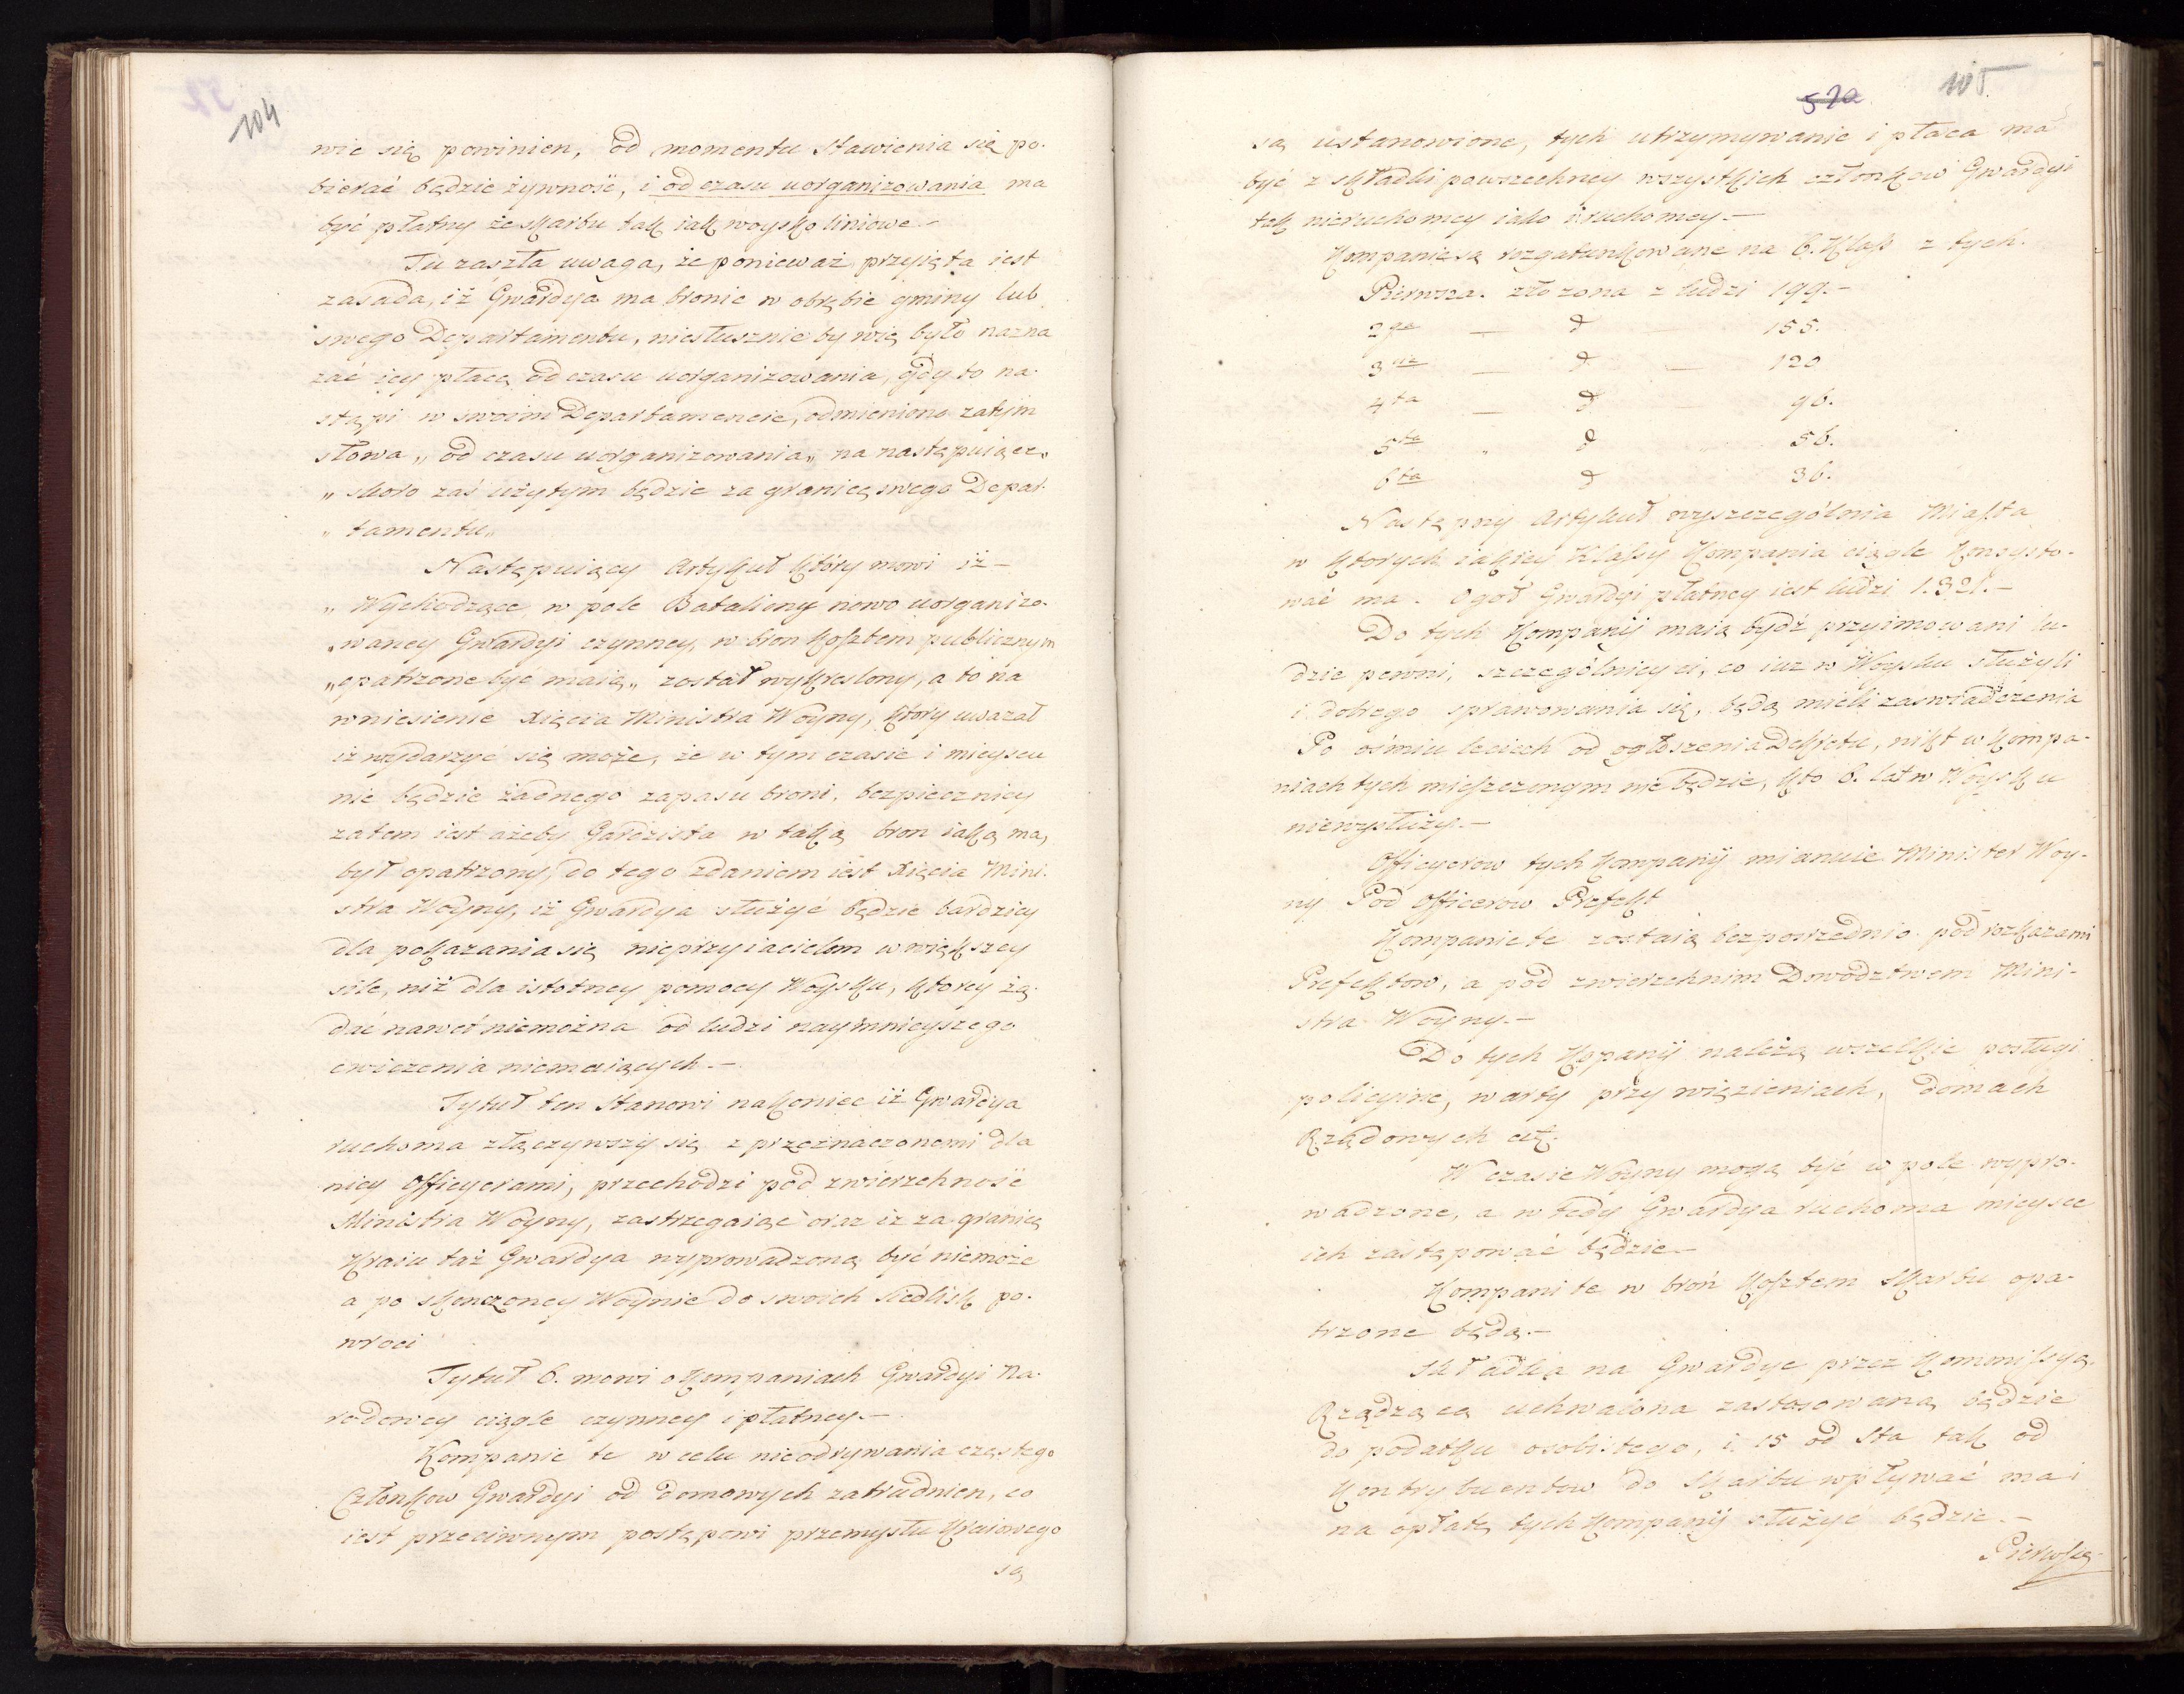 104
wić się powinien, od momentu stawienia się po-
bierać będzie żywność, i od czasu uorganizowania ma
być płatny ze skarbu tak iak woysko liniowe.-
Tu zaszła uwaga, że ponieważ przyięta iest
zasada, iż Gwardya ma bronić w obrębie gminy lub
swego Departamentu, niesłusznie by więc było nazna
zać iey płacę od czasu uorganizowania, gdy to na-
stąpi w swoim Departamencie, odmieniono zatym
słowa „ od czasu uorganizowania „ na następuiące „
„ skoro zaś użytym będzie za granicę swego Depar-
„ tamentu „
Następuiący Artykuł który mowi iż -
„ Wychodzące w pole Bataliony nowo uorganizo-
„ waney Gwardyi czynney, w bron kosztem publicznym
„ opatrzone być maią „ został wykreslony, a to na
wniesienie Xięcia Ministra Woyny, ktory uwazał
iż wydarzyć się może, że w tym czasie i mieyscu
nie będzie żadnego zapasu broni, bezpieczniey
zatem iest ażeby Gardzista w taką bron iaką ma,
był opatrzony, do tego zdaniem iest Xięcia Mini-
stra Woyny, iż Gwardya służyć będzie bardziey
dla pokazania się nieprzyiacielom w większey
sile, niż dla istotney pomocy Woysku, ktorey żą-
dać nawet niemożna od ludzi naymnieyszego
cwiczenia niemaiących.-
Tytuł ten stanowi nakoniec iż Gwardya
ruchoma złączywszy się z przeznaczonemi dla
niey Officyerami, przechodzi pod zwierzchność
Ministra Woyny, zastrzegaiąc oraz iż za granicę
Kraiu taż Gwardya wyprowadzoną być niemoże
a po skonczoney Woynie do swoich siedlisk po-
wroci
Tytuł 6. mowi o Kompaniach Gwardyi Na-
rodowey ciągle czynney i płatney.-
Kompanie te w celu nieodrywania częstego
Członkow Gwardyi od domowych zatrudnien, co
iest przeciwnym postępowi przemysłu Kraiowego
są
52a
105
są ustanowione, tych utrzymywanie i płaca ma
być z składki powszechney wszystkich członkow Gwardyi
tak nieruchomey iako i ruchomey.-
Kompanie są rozgatunkowane na 6. Klass z tych.
Pierwsza. złożona z ludzi 199.-
2ga - d 155.
3cia - d - 120
4ta - d 96.
5ta „ d 56.
6ta d 36.
Następny Artykuł wyszczególnia Miasta
w ktorych iakiey Klassy Kompania ciągle konsysto-
wać ma. Ogół Gwardyi płatney iest ludzi 1.321.-
Do tych Kompanij maią bydź przyimowani lu-
dzie pewni, szczególniey ci, co iuz w Woysku służyli
i dobrego sprawowania się, będą mieli zaswiadczenia
Po ośmiu leciech od ogłoszenia Dekretu, nikt w Kompa-
niach tych mieszczonym nie będzie, kto 6. lat w Woysku
niewysłuży.-
Officyerow tych Kompanij mianuie Minister Woy-
ny Pod Officerow Prefekt
Kompanie te zostaią bezposrzednio pod rozkazami
Prefektow, a pod zwierzchnim Dowodztwem Mini-
stra Woyny.-
Do tych Kopanij należą wszelkie posługi
policyine, warty przy więzieniach, domach
Rządowych etc.
W czasie Woyny mogą być w pole wypro-
wadzone, a w tedy Gwardya ruchoma mieysce
ich zastępować będzie.-
Kompani te w broń kosztem Skarbu opa-
trzone będą.-
Składka na Gwardye przez Kommissyą
Rządzącą uchwalona zastosowaną będzie
do podatku osobistego, i 15 od sta tak od
Kontrybuentow do Skarbu wpływać ma i
na opłatę tych Kompanij służyć będzie.-
Pierwszą